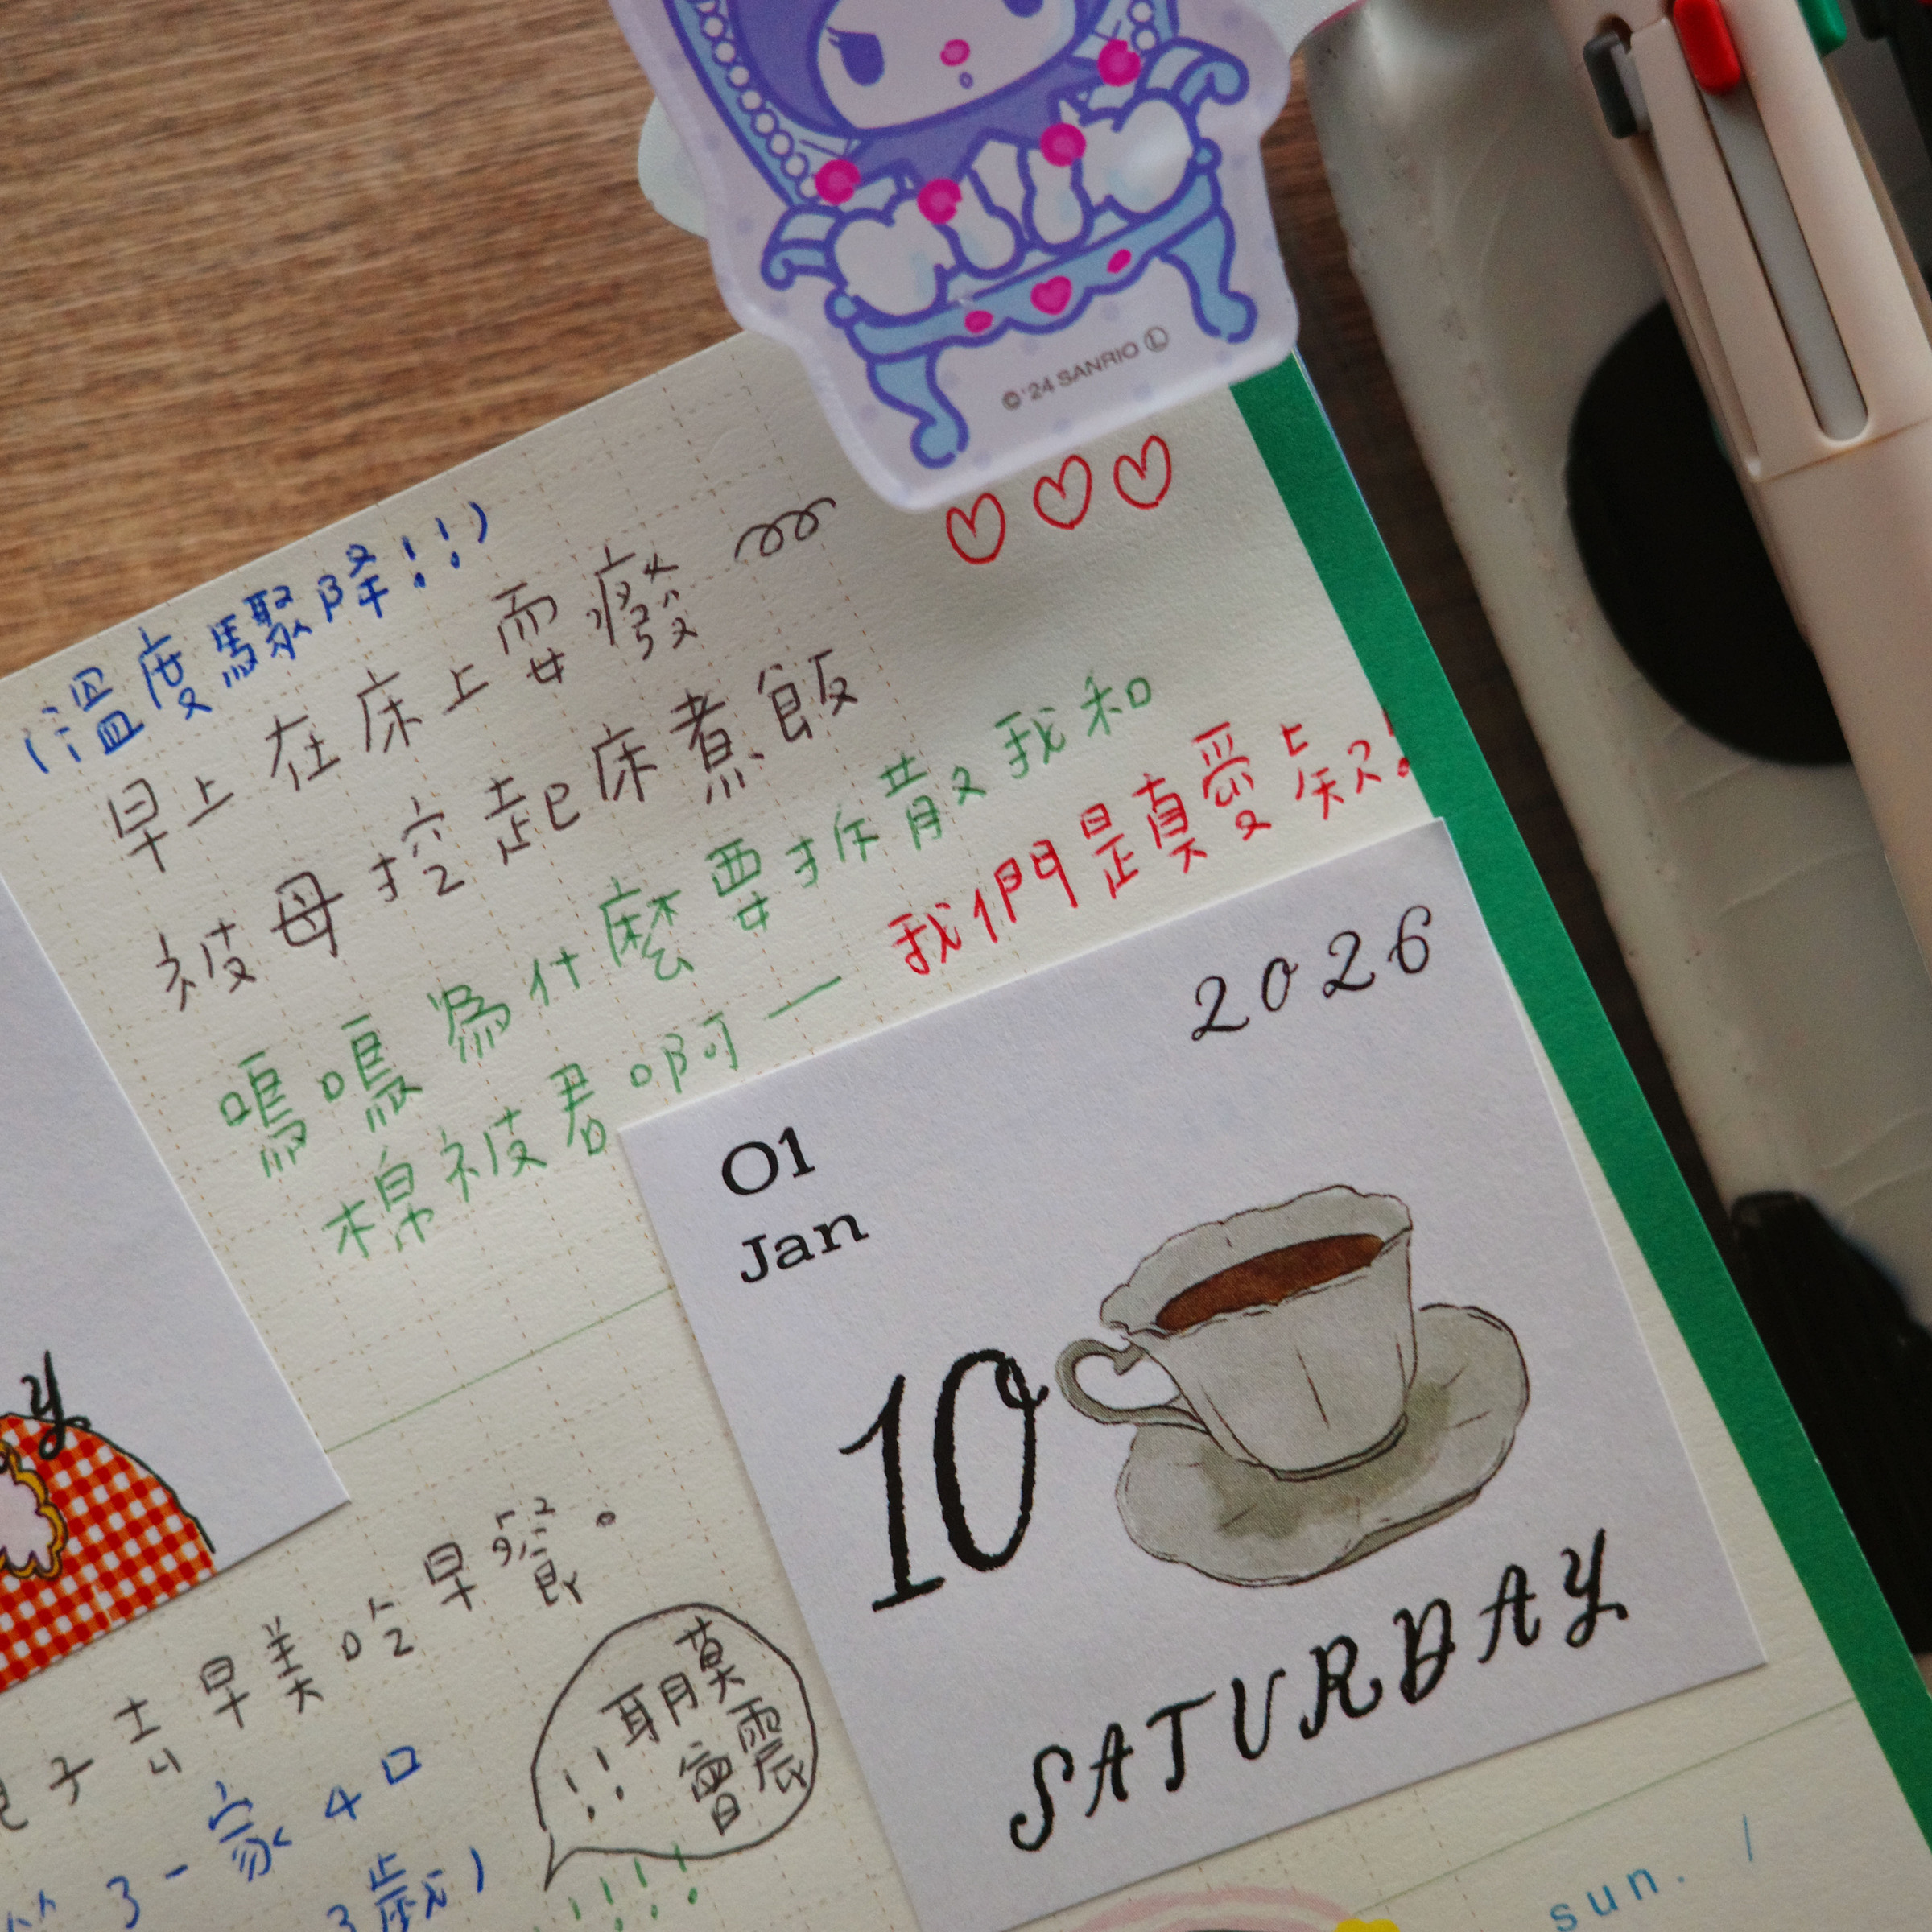 ©'24 SANRIO Ⓛ
(溫度驟降!!)
早上在床上耍癈
被母挖起床煮飯
嗚嗚為什麼要拆散我和
棉被君啊一
我們是真愛欸!
2026
01
Jan
10
SATURDAY
y
子去早美吃早餐。
3一家4口
3歲)
耶膜
會震
!!
!!!!
sun. /